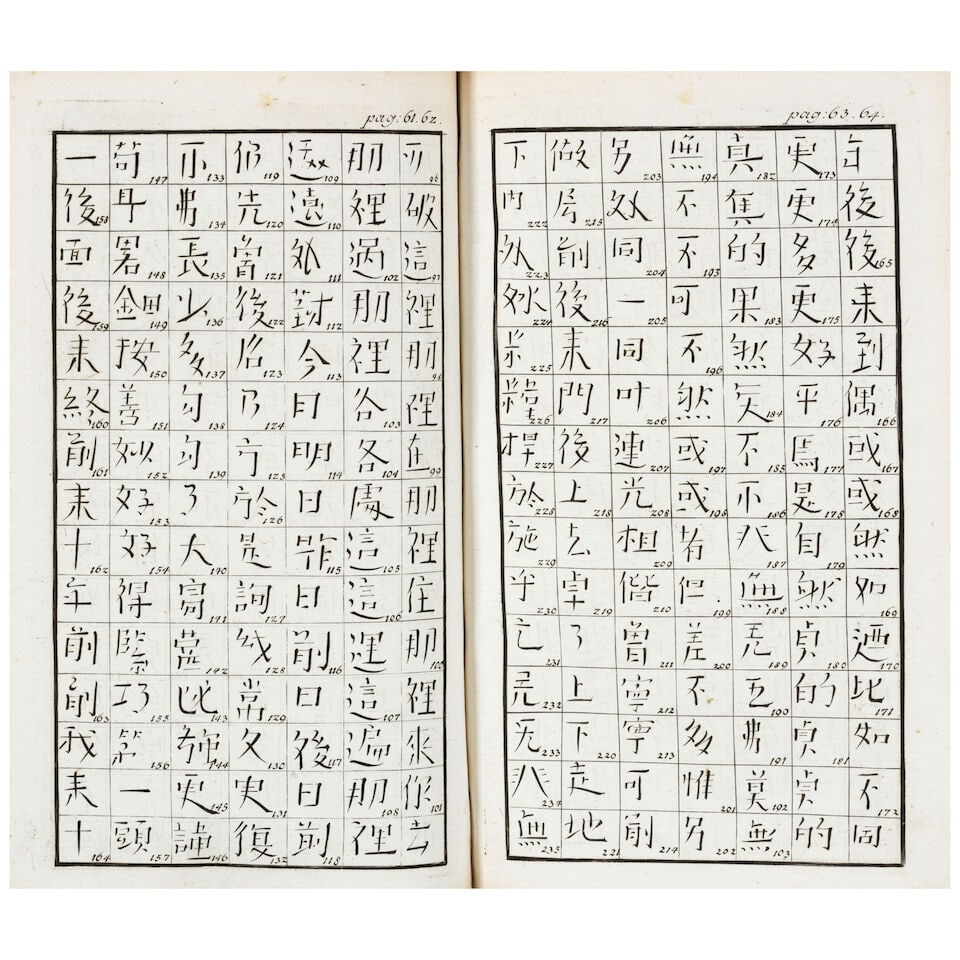 pag: 61. 62.
96 破 這 97 裡 那 98 裡 在 99 那 裡 住 那 100 裡 來 你 101 去
那 裡 過 102 那 裡 各 103 各 104 處 這 105 這 106 運 這 107 遍 那 108 裡
109 遠 110 外 111 對 112 今 113 日 明 114 日 昨 115 日 前 116 日 後 117 日 前 118
仍 119 先 120 曾 121 後 122 123 乃 124 125 於 126 是 詢 127 128 常 129 久 130 131 復 132
不 133 弗 134 長 135 少 136 多 137 勾 138 勾 139 了 大 140 141 142 此 143 施 144 更 145 謹 146
苟 147 耳 畧 148 149 按 150 善 151 妙 152 好 153 好 154 得 緊 巧 155 第 156 一 頭 157
一 後 158 面 後 159 來 終 160 前 161 來 十 162 年 前 前 163 我 來 十 164
pag: 63. 64.
年 後 後 165 來 到 偶 166 或 167 或 168 然 如 169 迺 170 比 171 如 不 172 同
更 173 更 174 多 更 175 好 平 176 焉 177 是 178 自 179 然 貞 180 的 貞 181 貞 的
真 182 的 果 183 然 矢 184 不 185 不 186 非 187 無 188 189 190 弗 191 莫 192 無 103
無 194 不 不 193 可 不 196 然 或 197 或 198 者 但 199 差 200 不 多 惟 201 另 202
另 203 外 同 204 一 205 同 叶 206 連 207 光 208 相 209 偕 210 曾 211 寧 212 寧 213 可 前 214
做 房 215 前 後 216 來 門 217 後 上 218 去 卓 219 了 上 下 220 走 地 221
下 内 222 外 223 外 224 225 226 捍 227 於 228 施 229 乎 230 亡 231 232 无 233 非 234 無 235